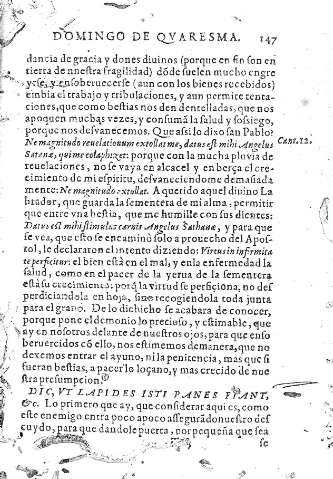 DOMINGO DE QVARESMA. 147
dancia de gracia y dones diuinos (porque en fin son en
tierra de nuestra fragilidad) dõde suelen mucho engre
yrse, y ensoberuecerse (aun con los bienes recebidos)
embia el trabajo y tribulaciones, y aun permite tenta-
ciones, que como bestias nos den dentelladas, que nos
apoquen muchas vezes, y consumã la salud y sossiego,
porque nos desvanecemos. Que assi lo dixo san Pablo:
Ne magnitudo reuelationum extollat me, datus est mihi Angelus
Satanæ, qui me colaphizet: porque con la mucha pluvia de
reuelaciones, no se vaya en alcacel y en berça el cre-
cimiento de mi espiritu, desvaneciendome demasiada
mente: Ne magnitudo extollat. A querido aquel diuino La
brador, que guarda la sementera de mi alma, permitir
que entre vna bestia, que me humille con sus dientes:
Datus est mihi stimulus carnis Angelus Sathanæ, y para que
se vea, que esto se encaminò solo a prouecho del Apos-
tol, le declararon el intento diziendo: Virtus in infirmita
te perficitur: el bien està en el mal, y en la enfermedad la
salud, como en el pacer de la yerua de la sementera
està su crecimiento: porq̃ la virtud se perficiona, no des
perdiciandola en hoja, sino recogiendola toda junta
para el grano. De lo dicho se acabara de conocer,
porque pone el demonio lo precioso, y estimable, que
ay en nosotros delante de nuestros ojos, para que enso
beruecidos cõ ello, nos estimemos demanera, que no
dexemos entrar el ayuno, ni la penitencia, mas que si
fueran bestias, a pacer lo loçano, y mas crecido de nue
stra presumpcion.
DIC, VT LAPIDES ISTI PANES FIANT,
&c. Lo primero que ay, que considerar aqui es, como
este enemigo entra poco apoco assegurãdo nuestro des
cuydo, para que dandole puerta, por pequeña que sea
se